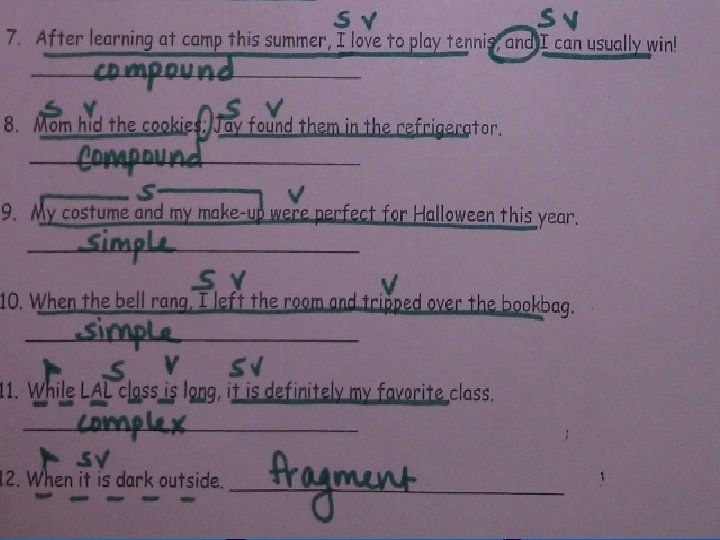 S V S V
7. After learning at camp this summer, I love to play tennis, and I can usually win!
compound
S V S V
8. Mom hid the cookies; Jay found them in the refrigerator.
compound
S V
9. My costume and my make-up were perfect for Halloween this year.
simple
S V V
10. When the bell rang, I left the room and tripped over the bookbag.
simple
S V S V
11. While LAL class is long, it is definitely my favorite class.
complex
S V
12. When it is dark outside. fragment